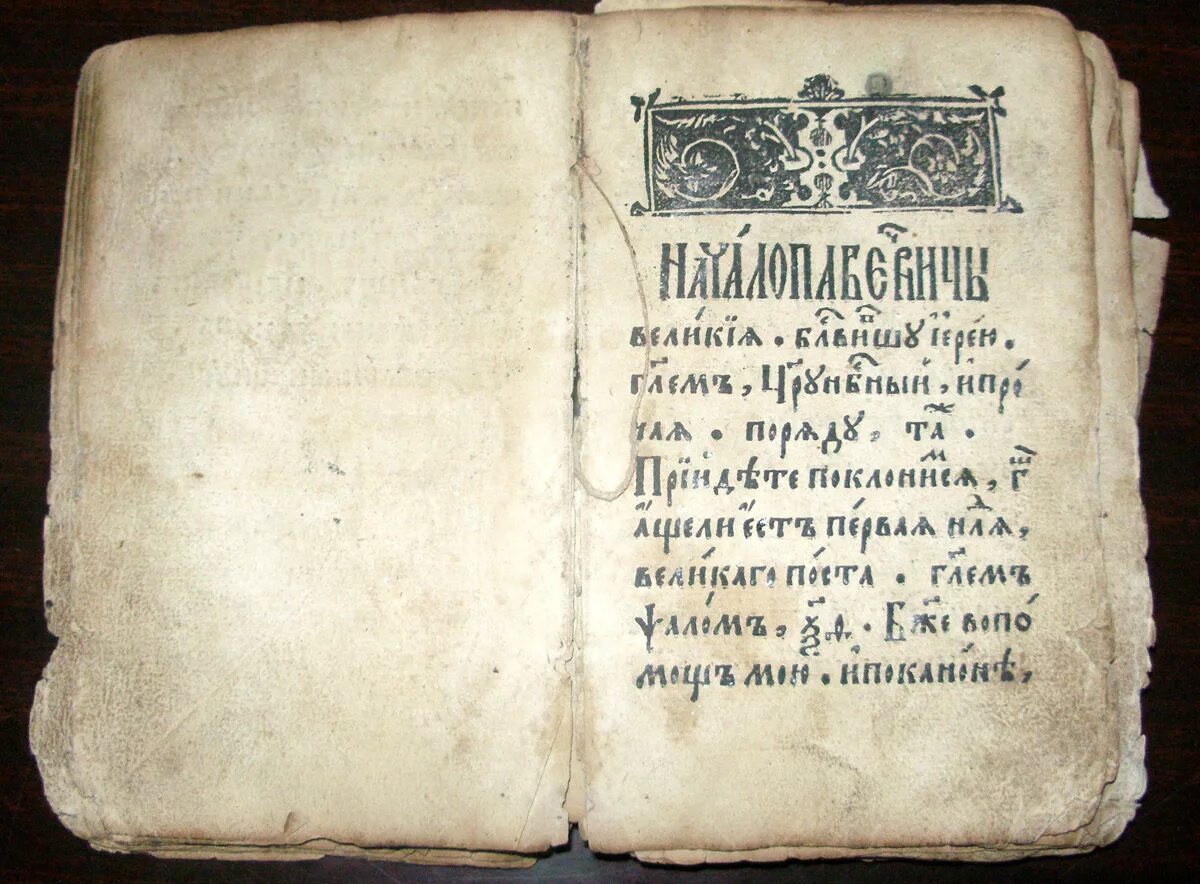 НАЧА́ЛО ПАВЕЧЕ́РНИЦЫ
вели́кїѧ . бл҃ви́вшꙋ їере́ю .
гл҃емъ , Цр҃ю нбⷭ҇ный , и҆ про́
чаѧ . по рѧдꙋ , таⷤ .
Прїиди́те поклони́мсѧ , гⷳ҇
а҆ще ли є҆сть пе́рваѧ неⷣлѧ ,
вели́каго по́ста . гл҃емъ
ѱало́мъ , ѯ҃ѳ . Бж҃е в по
мощъ мою̀ . и҆ по кано́нѣ ,